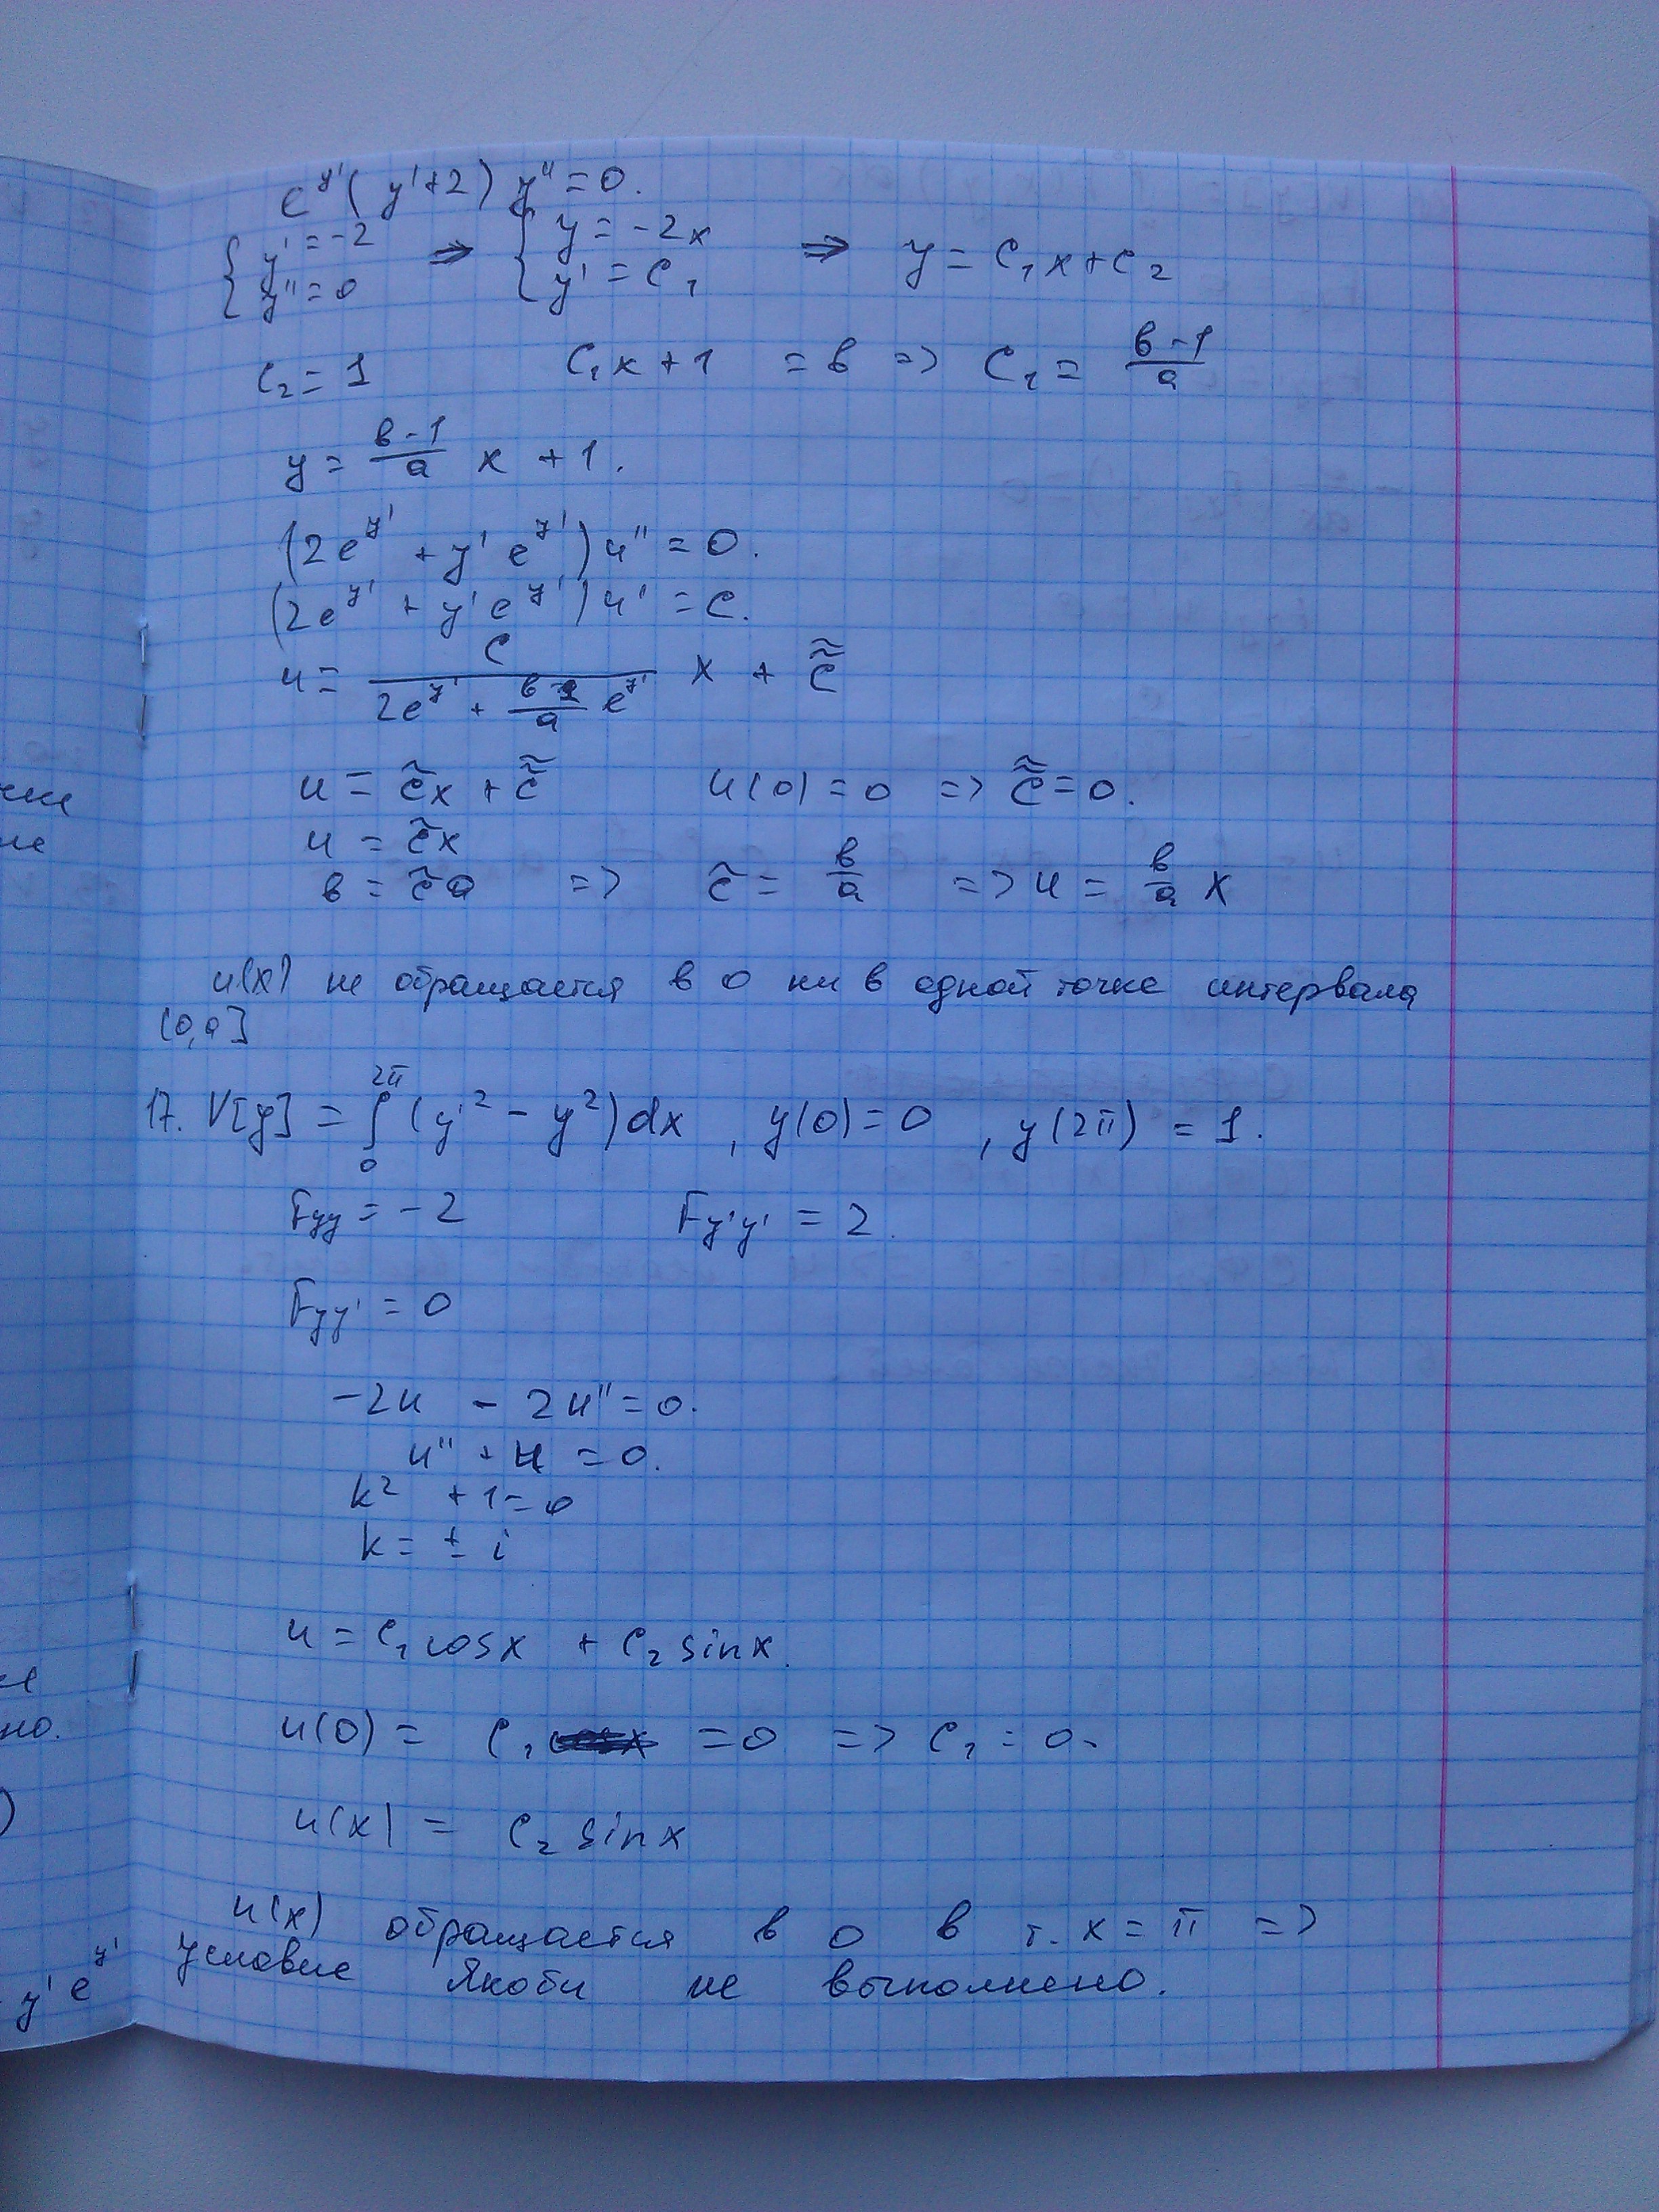 e^{y'}(y'+2) y''=0.
{ y'=-2 ⇒ { y = -2x ⇒ y = C₁x+C₂
{ y''=0 { y' = C₁
C₂=1 C₁x+1 = в => C₁ = (в-1)/a
y = (в-1)/a x + 1.
(2e^{y'} + y' e^{y'}) u'' = 0.
(2e^{y'} + y' e^{y'}) u' = C.
u = C/(2e^{y'} + (в-1)/a e^{y'}) x + C̃̃
u = C̃x + C̃̃ u(0)=0 => C̃̃=0.
u = C̃x
в = C̃a => C̃ = в/a => u = в/a x
u(x) не обращается в 0 ни в одной точке интервала
(0,a]
17. V[y] = ∫₀^{2π} (y'² - y²)dx , y(0)=0 , y(2π) = 1.
F_{yy} = -2 F_{y'y'} = 2.
F_{yy'} = 0
-2u - 2u''=0.
u'' + u = 0.
k² + 1=0
k = ± i
u = C₁cosx + C₂ sinx.
u(0) = C₁ = 0 => C₁ = 0.
u(x) = C₂ sinx
u(x) обращается в 0 в т. x = π =>
условие Якоби не выполнено.
не
но.
)
y' e^{y'}